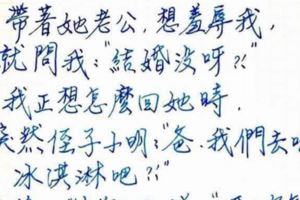 帶著她老公,想羞辱我,
就問我:"結婚沒呀?!"
我正想怎麼回她時,
突然侄子小明:"爸.我們去吃
冰淇淋吧?!"